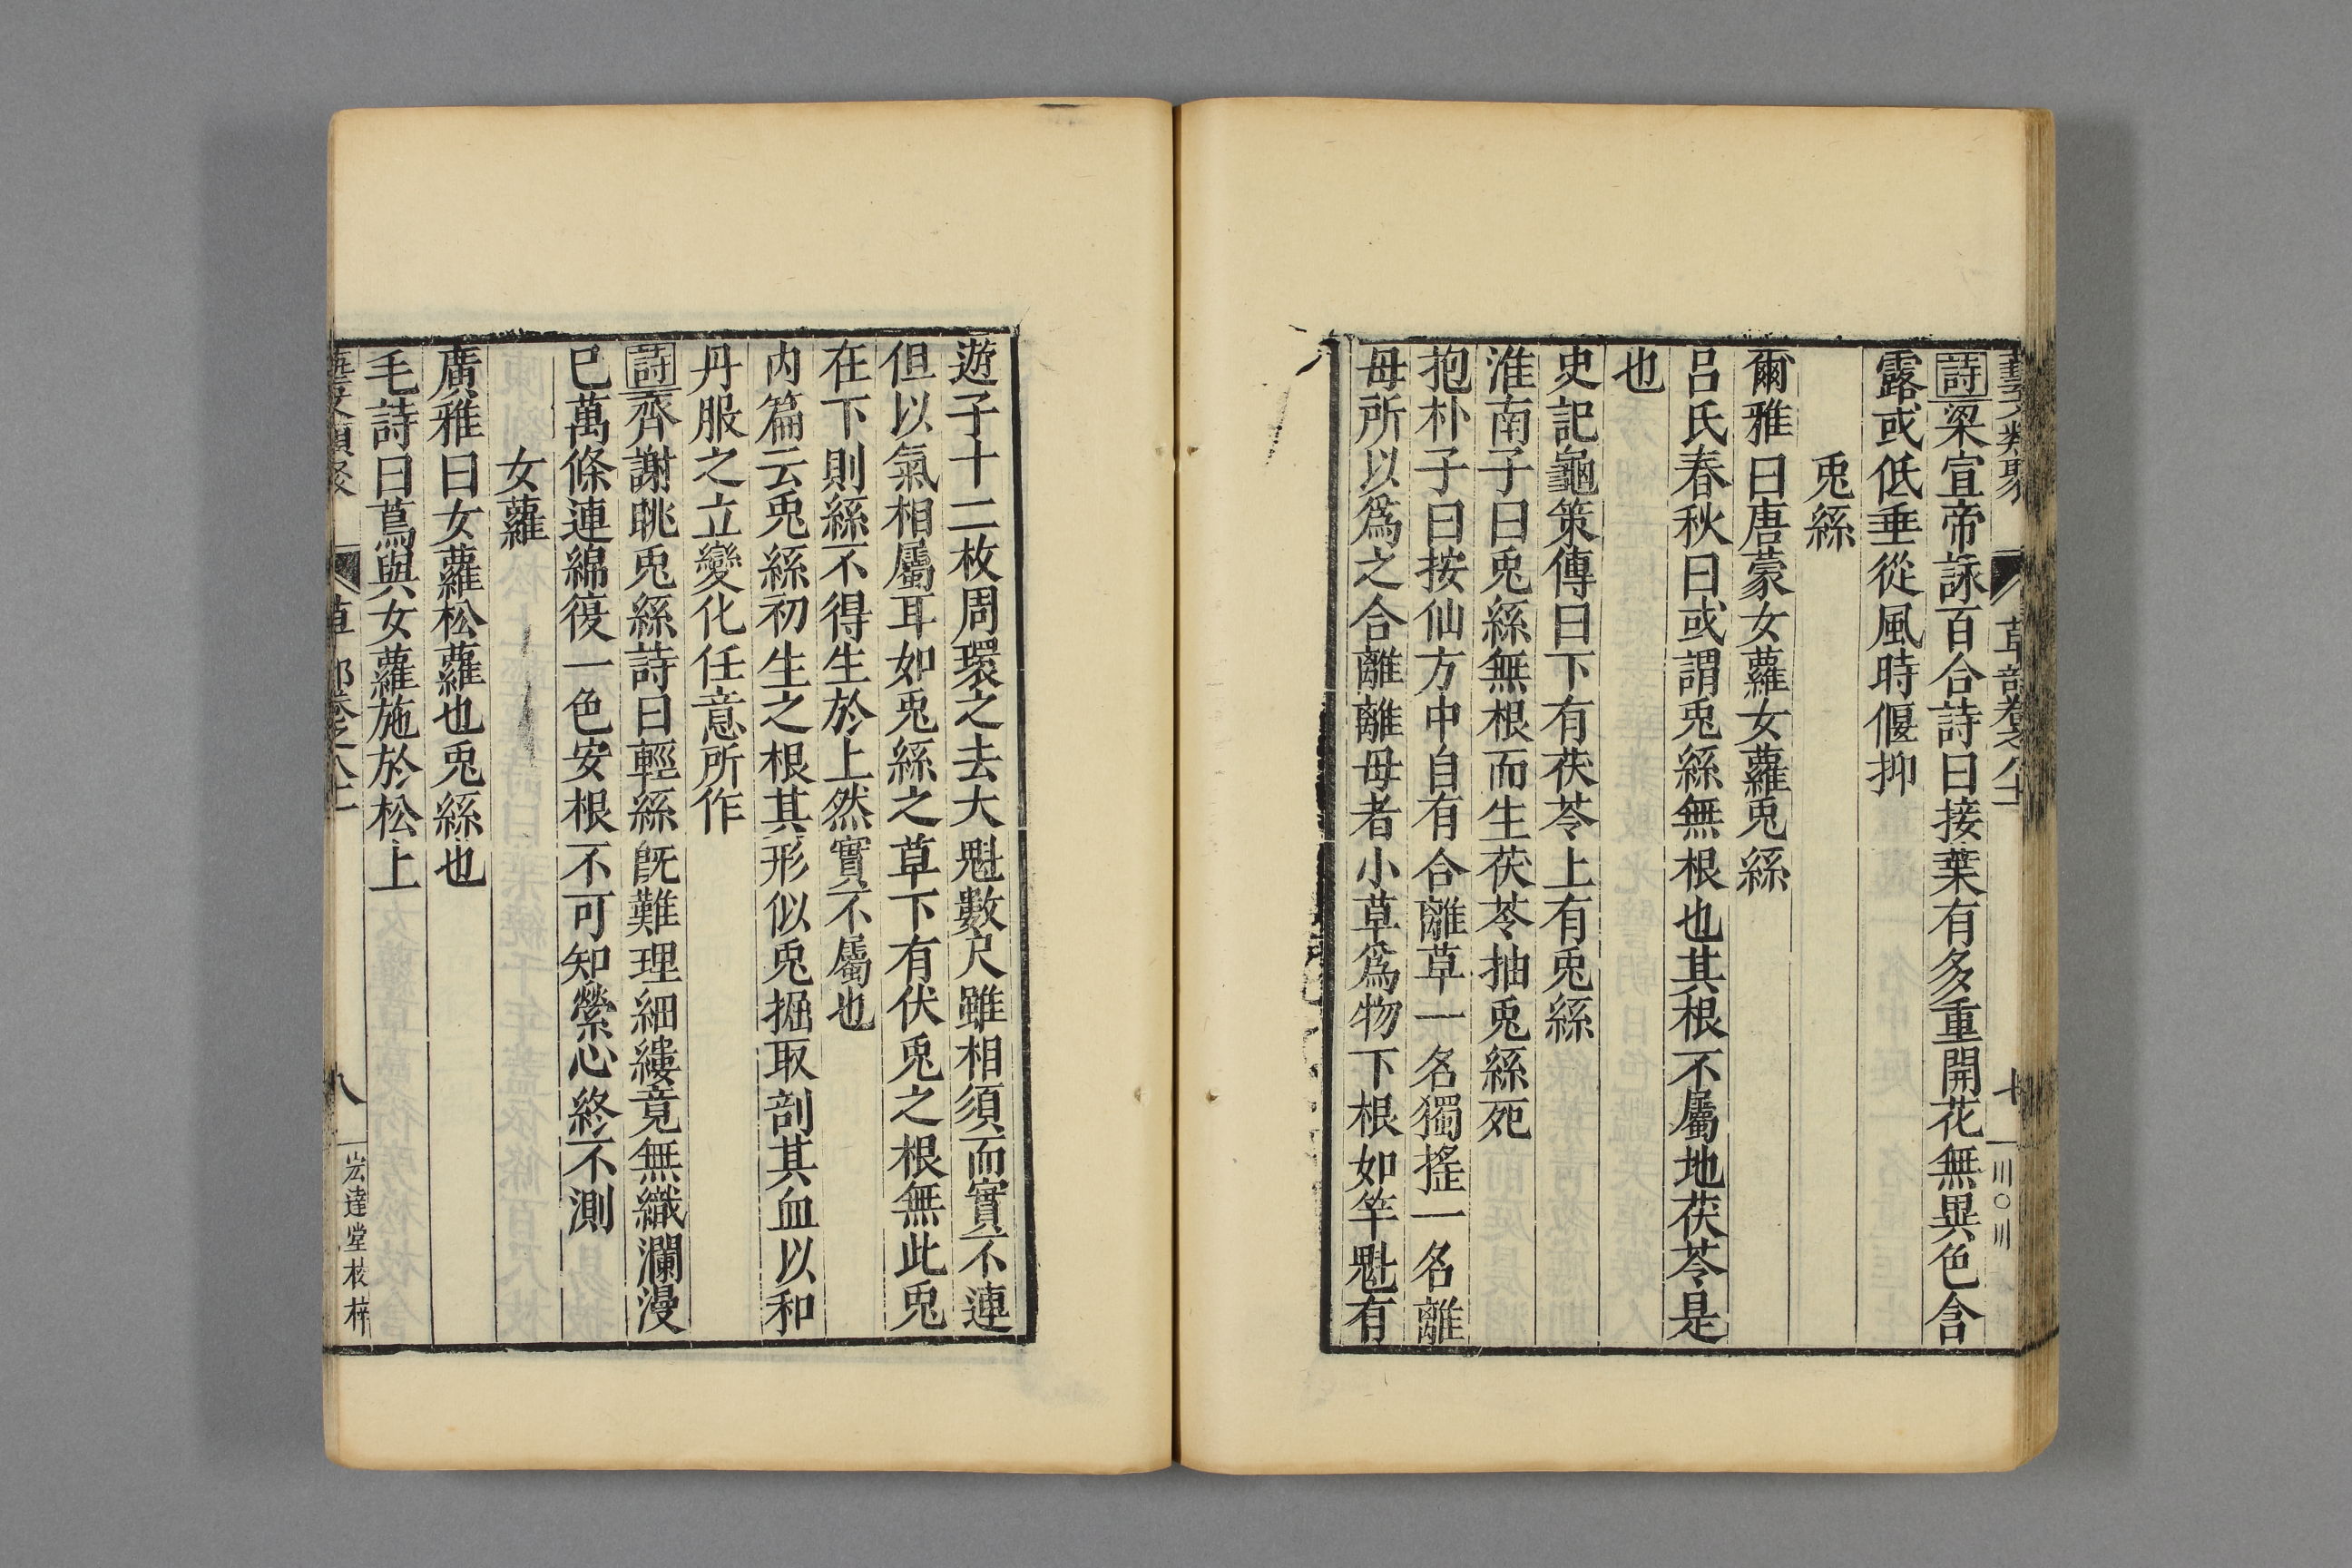 藝文類聚 草部卷之八十一
詩梁宣帝詠百合詩曰接葉有多重開花無異色含
露或低垂從風時偃抑
兎絲
爾雅曰唐蒙女蘿女蘿兎絲
呂氏春秋曰或謂兎絲無根也其根不屬地茯苓是
也
史記龜策傳曰下有茯苓上有兎絲
淮南子曰兎絲無根而生茯苓抽兎絲死
抱朴子曰按仙方中自有合離草一名獨搖一名離
母所以爲之合離離母者小草爲物下根如芋魁有
遊子十二枚周環之去大魁數尺雖相須而實不連
但以氣相屬耳如兎絲之草下有伏兎之根無此兎
在下則絲不得生於上然實不屬也
內篇云兎絲初生之根其形似兎掘取剖其血以和
丹服之立變化任意所作
詩齊謝朓兎絲詩曰輕絲旣難理細縷竟無織瀾漫
已萬條連綿復一色安根不可知縈心終不測
女蘿
廣雅曰女蘿松蘿也兎絲也
毛詩曰蔦與女蘿施於松上
八 宏達堂校梓